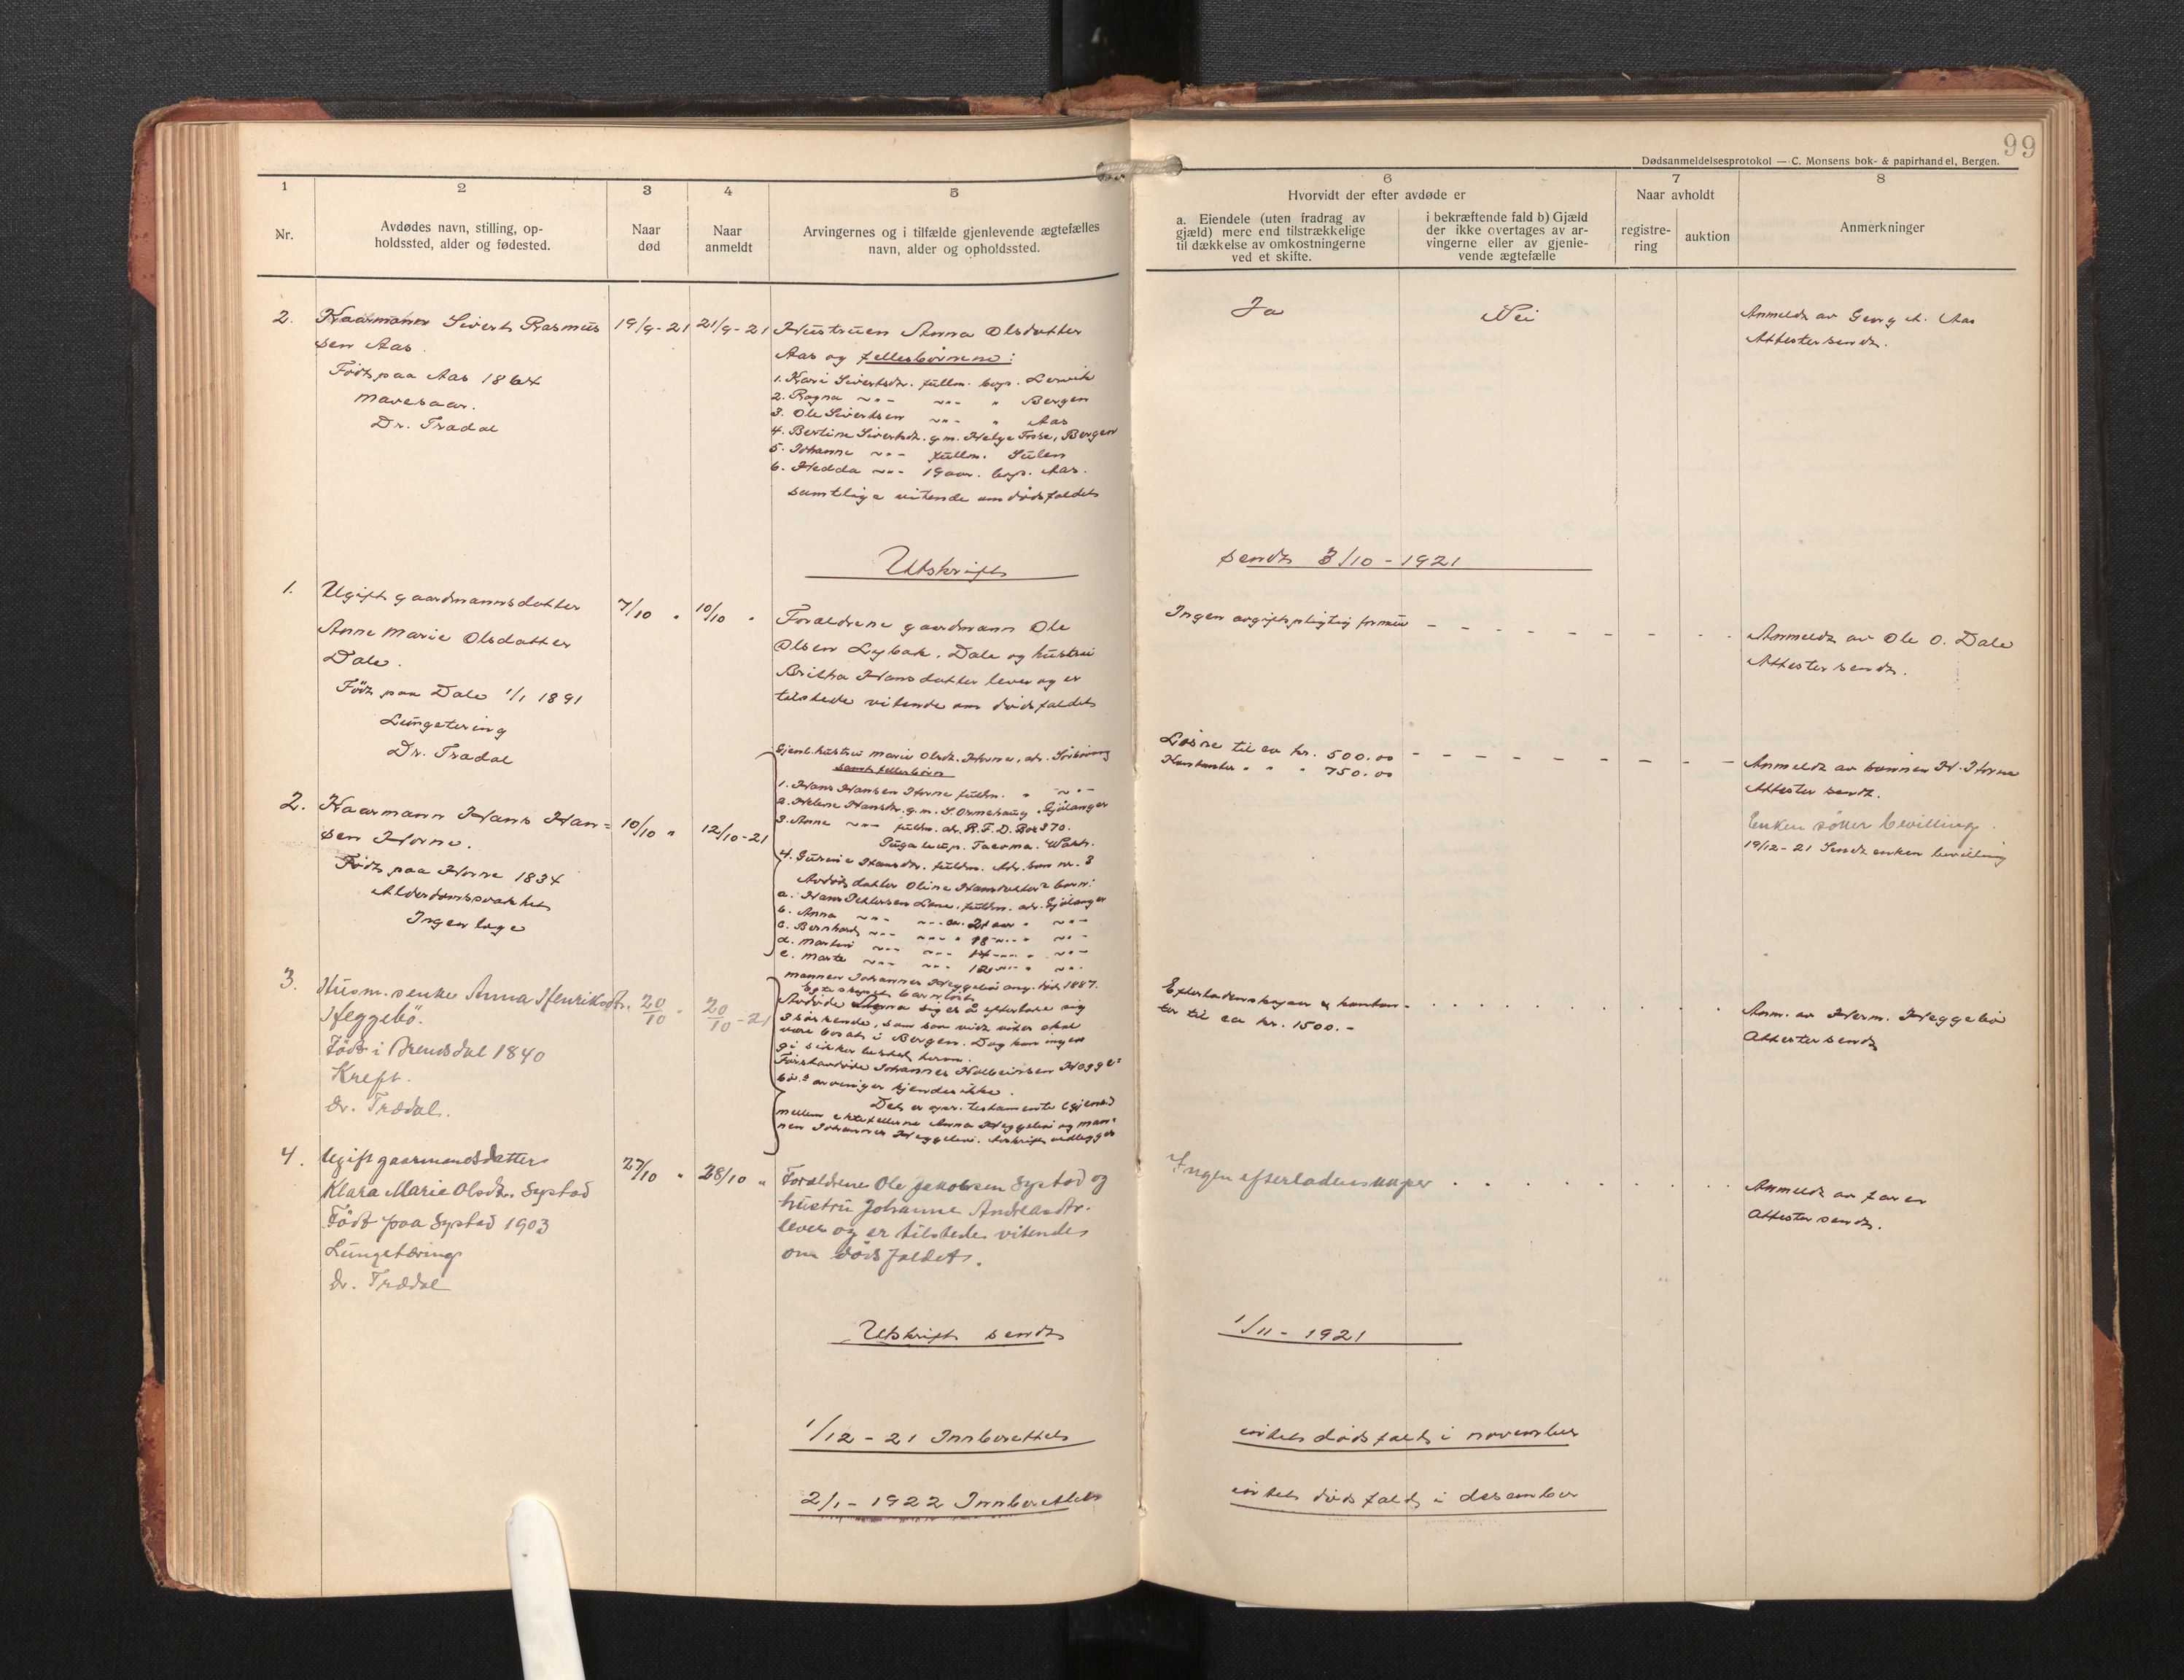 99
Dødsanmeldelsesprotokol — C. Monsens bok- & papirhandel, Bergen.
1
Nr.
2
Avdødes navn, stilling, op-
holdssted, alder og fødested.
3
Naar
død
4
Naar
anmeldt
5
Arvingernes og i tilfælde gjenlevende ægtefælles
navn, alder og opholdssted.
6
Hvorvidt der efter avdøde er
a. Eiendele (uten fradrag av
gjæld) mere end tilstrækkelige
til dækkelse av omkostningerne
ved et skifte.
i bekræftende fald b) Gjæld
der ikke overtages av ar-
vingerne eller av gjenle-
vende ægtefælle
7
Naar avholdt
registre-
ring
auktion
8
Anmerkninger
2.
Kaarmann Sivert Rasmus
sen Aas
Födt paa Aas 1864
Mavesaar.
Dr. Tradal
19/9-21
21/9-21
Hustruen Anna Olsdatter
Aas og fellesbörnene:
1. Kari Sivertsdr. fullm. bop. Lervik
2. Ragna -"- -"- " Bergen
3. Ole Sivertsen -"- " Aas
4. Bertine Sivertsdr. g.m. Helge Fosse, Bergen
5. Johanne -"- fullm. Sulen
6. Hedda -"- 19 aar. bop. Aas.
samtlige vitende om dödsfaldet
Ja
Nei
Anmeldt av Georg A. Aas
Attester sendt.
Utskrift
sendt 3/10-1921
1.
Ugift gaardmannsdatter
Anne Marie Olsdatter
Dale.
Födt paa Dale 1/1 1891
Lungetering
Dr. Tradal
7/10 "
10/10 "
Foraldrene gaardmann Ole
Olsen Lybak. Dale og hustru
Britha Hansdatter lever og er
tilstede vitende om dödsfaldet
Ingen avgiftspligtig formue
Anmeldt av Ole O. Dale
Attester sendt.
2.
Kaarmann Hans Han=
sen Horne.
Födt paa Horne 1834
Alderdomssvakhet
Ingen lege
10/10 "
12/10-21
Gjenl. hustru Marie Olsdt. Horne, adr.
samt fellesbörn
1. Hans Hansen Horne fuldm. " -"-
2. Helene Hansdr. g.m. S. Ormehaug, Gjølanger
3. Anne -"- fuldm. adr. R.F.D. Box 370.
Tacoma. Wash.
4. Gurine Hansdr. fuldm. Adr. som nr. 3
Avdöd datter Oline Hansdatter's barn:
a. Hans Pettersen Lone. fuldm. adr. Gjølanger
b. Anna -"- -"- ca. 21 aar " -"-
c. Bernhard -"- -"- " 18 -"- " -"-
d. -"- -"- 14 -"- " -"-
e. Marte -"- -"- 12 -"- " -"-
Lösöre til ca kr. 500.00
Kontanter " " " 750.00
Anmeldt av sønnen H. Horne
Attester sendt.
Enken söker bevilling.
19/12-21 Sendt enken bevilling
3.
Husm.senke Anna Henriksdtr.
Heggebö.
Födt i 1840
Kreft.
dr. Trædal.
20/10 "
20/10-21
Mannen Johannes Heggebö ang. död 1887.
Egteskapet barnlöst
Avdöde sig å efterlate sig
3 söskende, som saa vidt vites skal
være bosat i Bergen. Dog kan ingen
gi sikker besked herom.
Förstavdöde Johannes Heggebö's arvinger kjendes ikke.
Det er opr. testamente
mellem ektefellerne Anna Heggebö og man-
nen Johannes Heggebö. Avskrift vedlegges
Efterladenskaper & kontan-
ter til ca kr. 1500.-
Anm. av Herm. Heggebö
Attester sendt
4.
Ugift gaarmandsdatter
Klara Marie Olsdt. Systad
Födt paa Systad 1903
Lungetæring
dr. Trædal
27/10 "
28/10 "
Foraldrene Ole Jakobsen Systad og
hustru Johanne Andreasdtr.
lever og er tilstede vitende
om dödsfaldet.
Ingen efterladenskaper
Anmeldt av faren
Attester sendt.
Utskrift sendt
1/11-1921
1/12-21 Innberettet
intet dödsfald i november
2/1-1922 Innberettet
intet dödsfald i desember